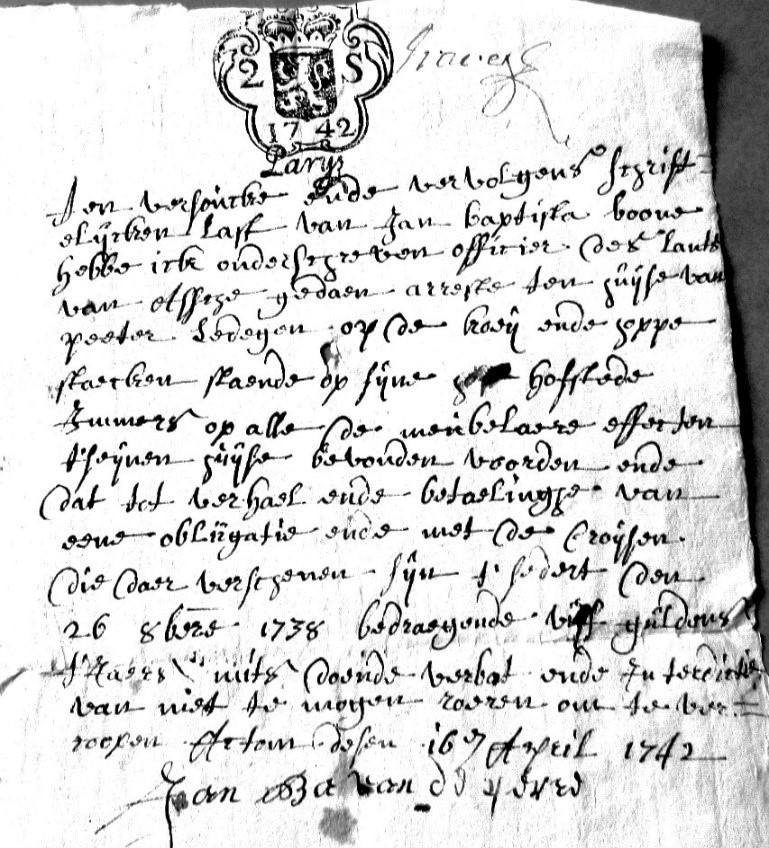 2 S
1742
Ten versoucke ende vervolgens schrift-
elijcken last van Jan baptista boone
hebbe ick onderschreven officier des lants
van assche gedaen arreste ten huijse van
peeter Ledegen op de koeij ende hoppe
staecken staende op sijne hofstede
Immers op alle de meubelaere effecten
t'seijnen huijse bevonden worden ende
dat tot verhael ende betaelinghe van
eene obligatie ende met de croijsen
die daer verschenen sijn t'sedert den
26 8bere 1738 bedraegende vijff guldens
t'Jaers mits doende verbot ende Interdictie
van niet te mogen roeren om te ver-
coopen Actum desen 16 April 1742
Jan Ba van de